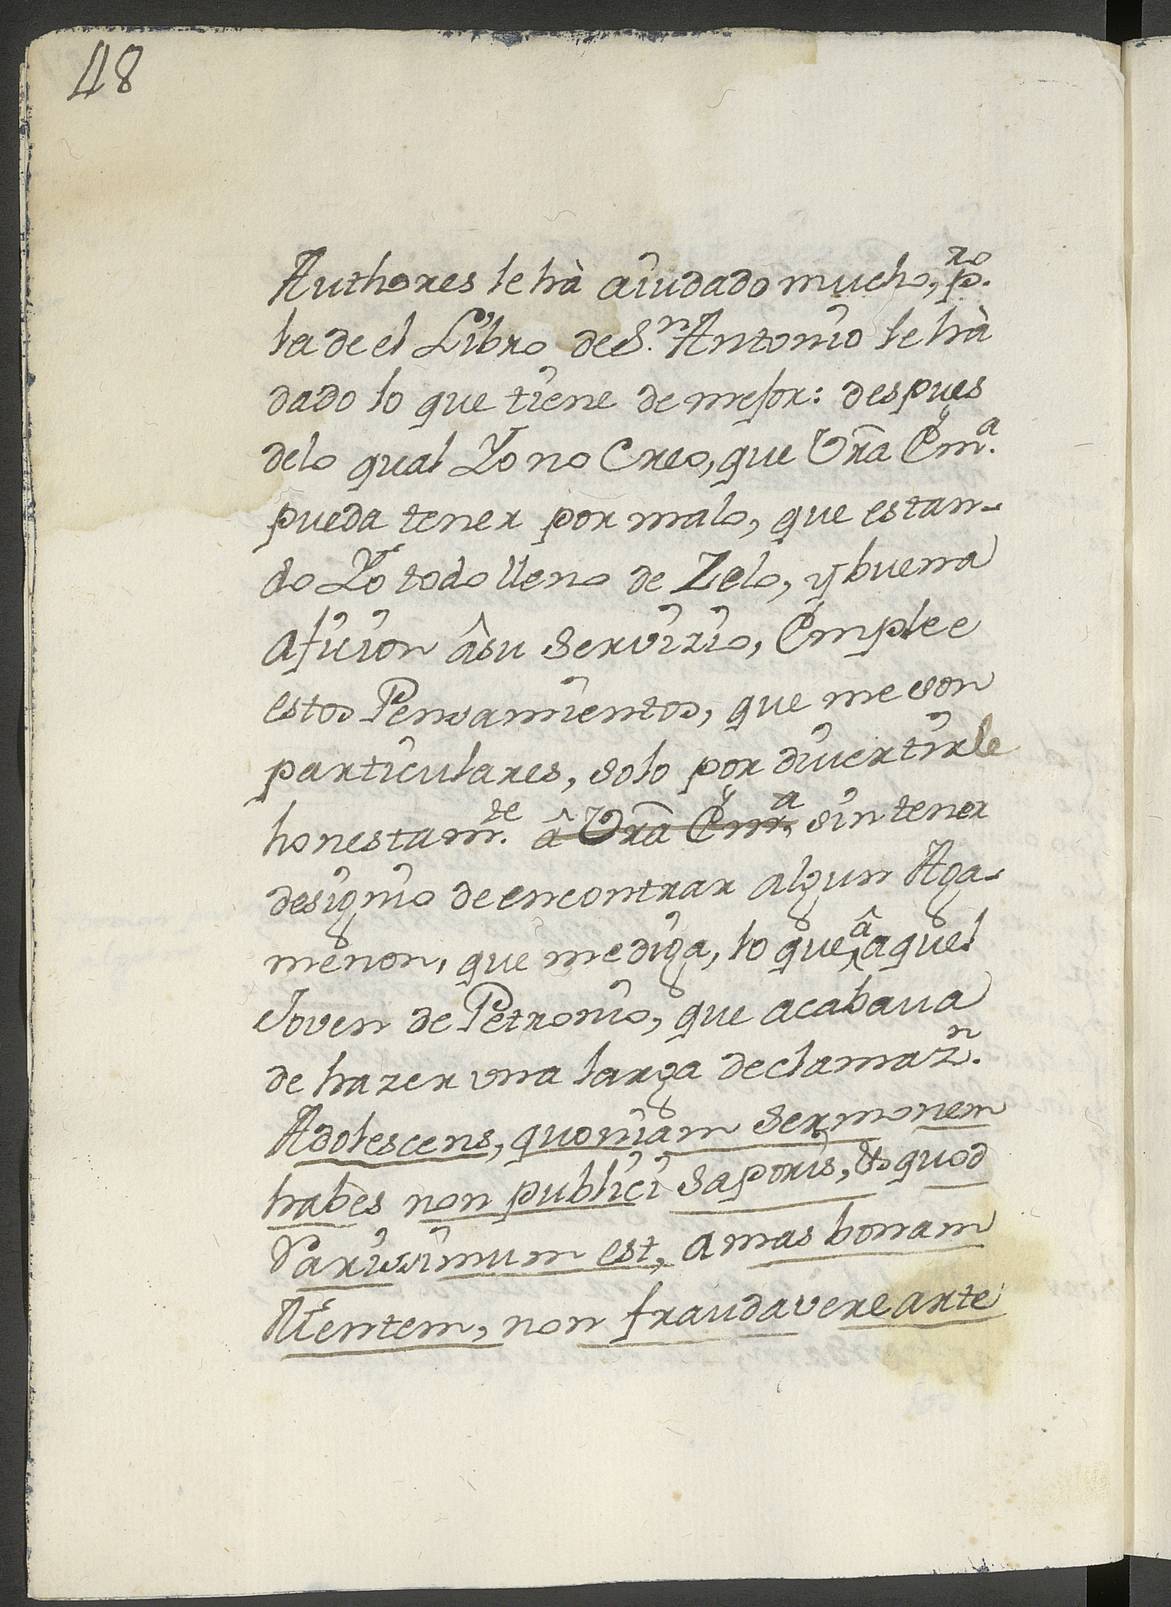 48
Authores le hà aiudado mucho, p.ro
la de el Libro de S.n Antonio le hà
dado lo que tiene de mejor: despues
delo qual Yo no Creo, que Vrã Em.a
pueda tener por malo, que estan-
do Yo todo lleno de Zelo, y buena
afición âsu Servizio, Emplee
estos Pensamientos, que me son
particulares, solo por divertirle
honestam.te â Vrã Em.a, sin tener
designio de encontrar algun Aga-
menon, que me diga, lo que â aquel
Joven de Petronio, que acabava
de hazer vna larga declamaz.n
Adolescens, quoniam sermonem
habes non publici saporis, & quod
rarissimum est, amas bonam
Mentem, non fraudavere arte